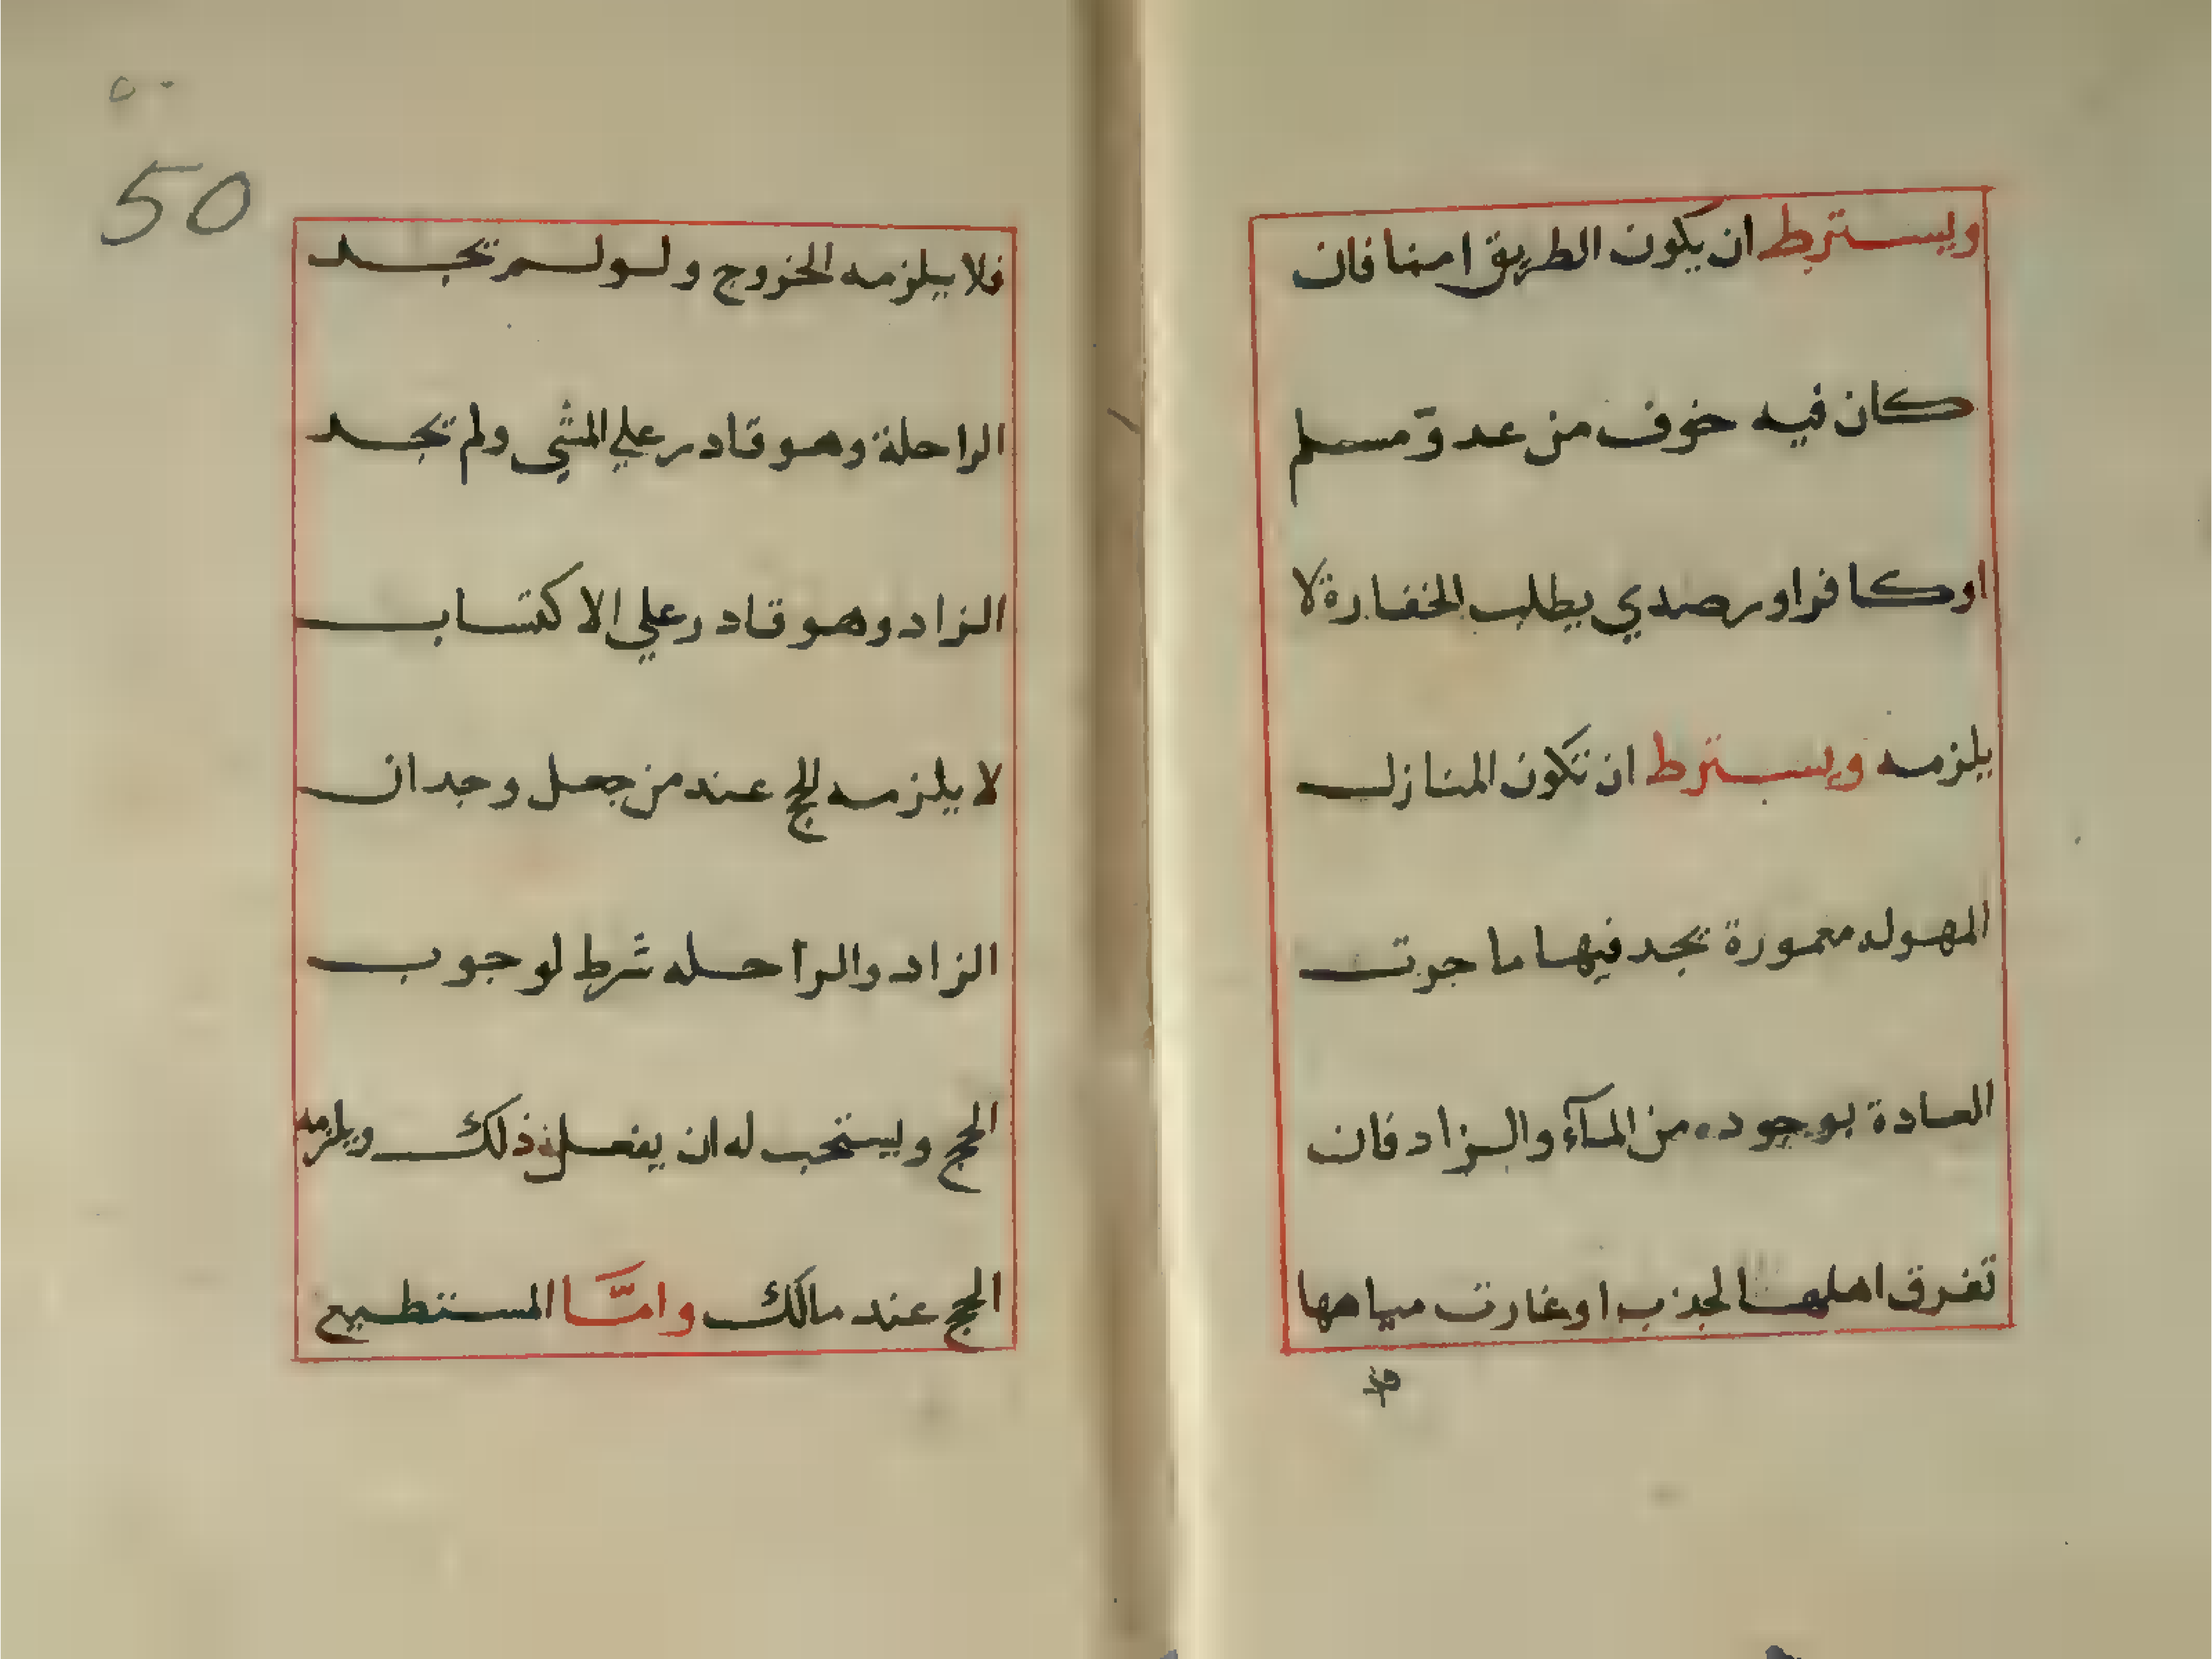 ويسترط ان يكون الطريق امنا فان
كان فيه خوف من عدوّ مسلم
اوكافر او رصدي يطلب الخفارة لا
يلزمه ويسترط ان تكون المنازل
المهوله معمورة تجد فيها ما جرت
العادة بوجوده من المآء والزاد فان
تفرق اهلها لجذب او غارت مياهها
٥٠
50
فلا يلزمه الخروج ولولم تجد
الراحلة وهو قادر علي المشي ولم تجد
الزاد وهو قادر علي الاكتساب
لا يلزمه للحج عند من جعل وجدان
الزاد والراحله شرط لوجوب
الحج ويستحب له ان يفعل ذلك ويلزمه
الحج عند مالك وامّا المستطيع